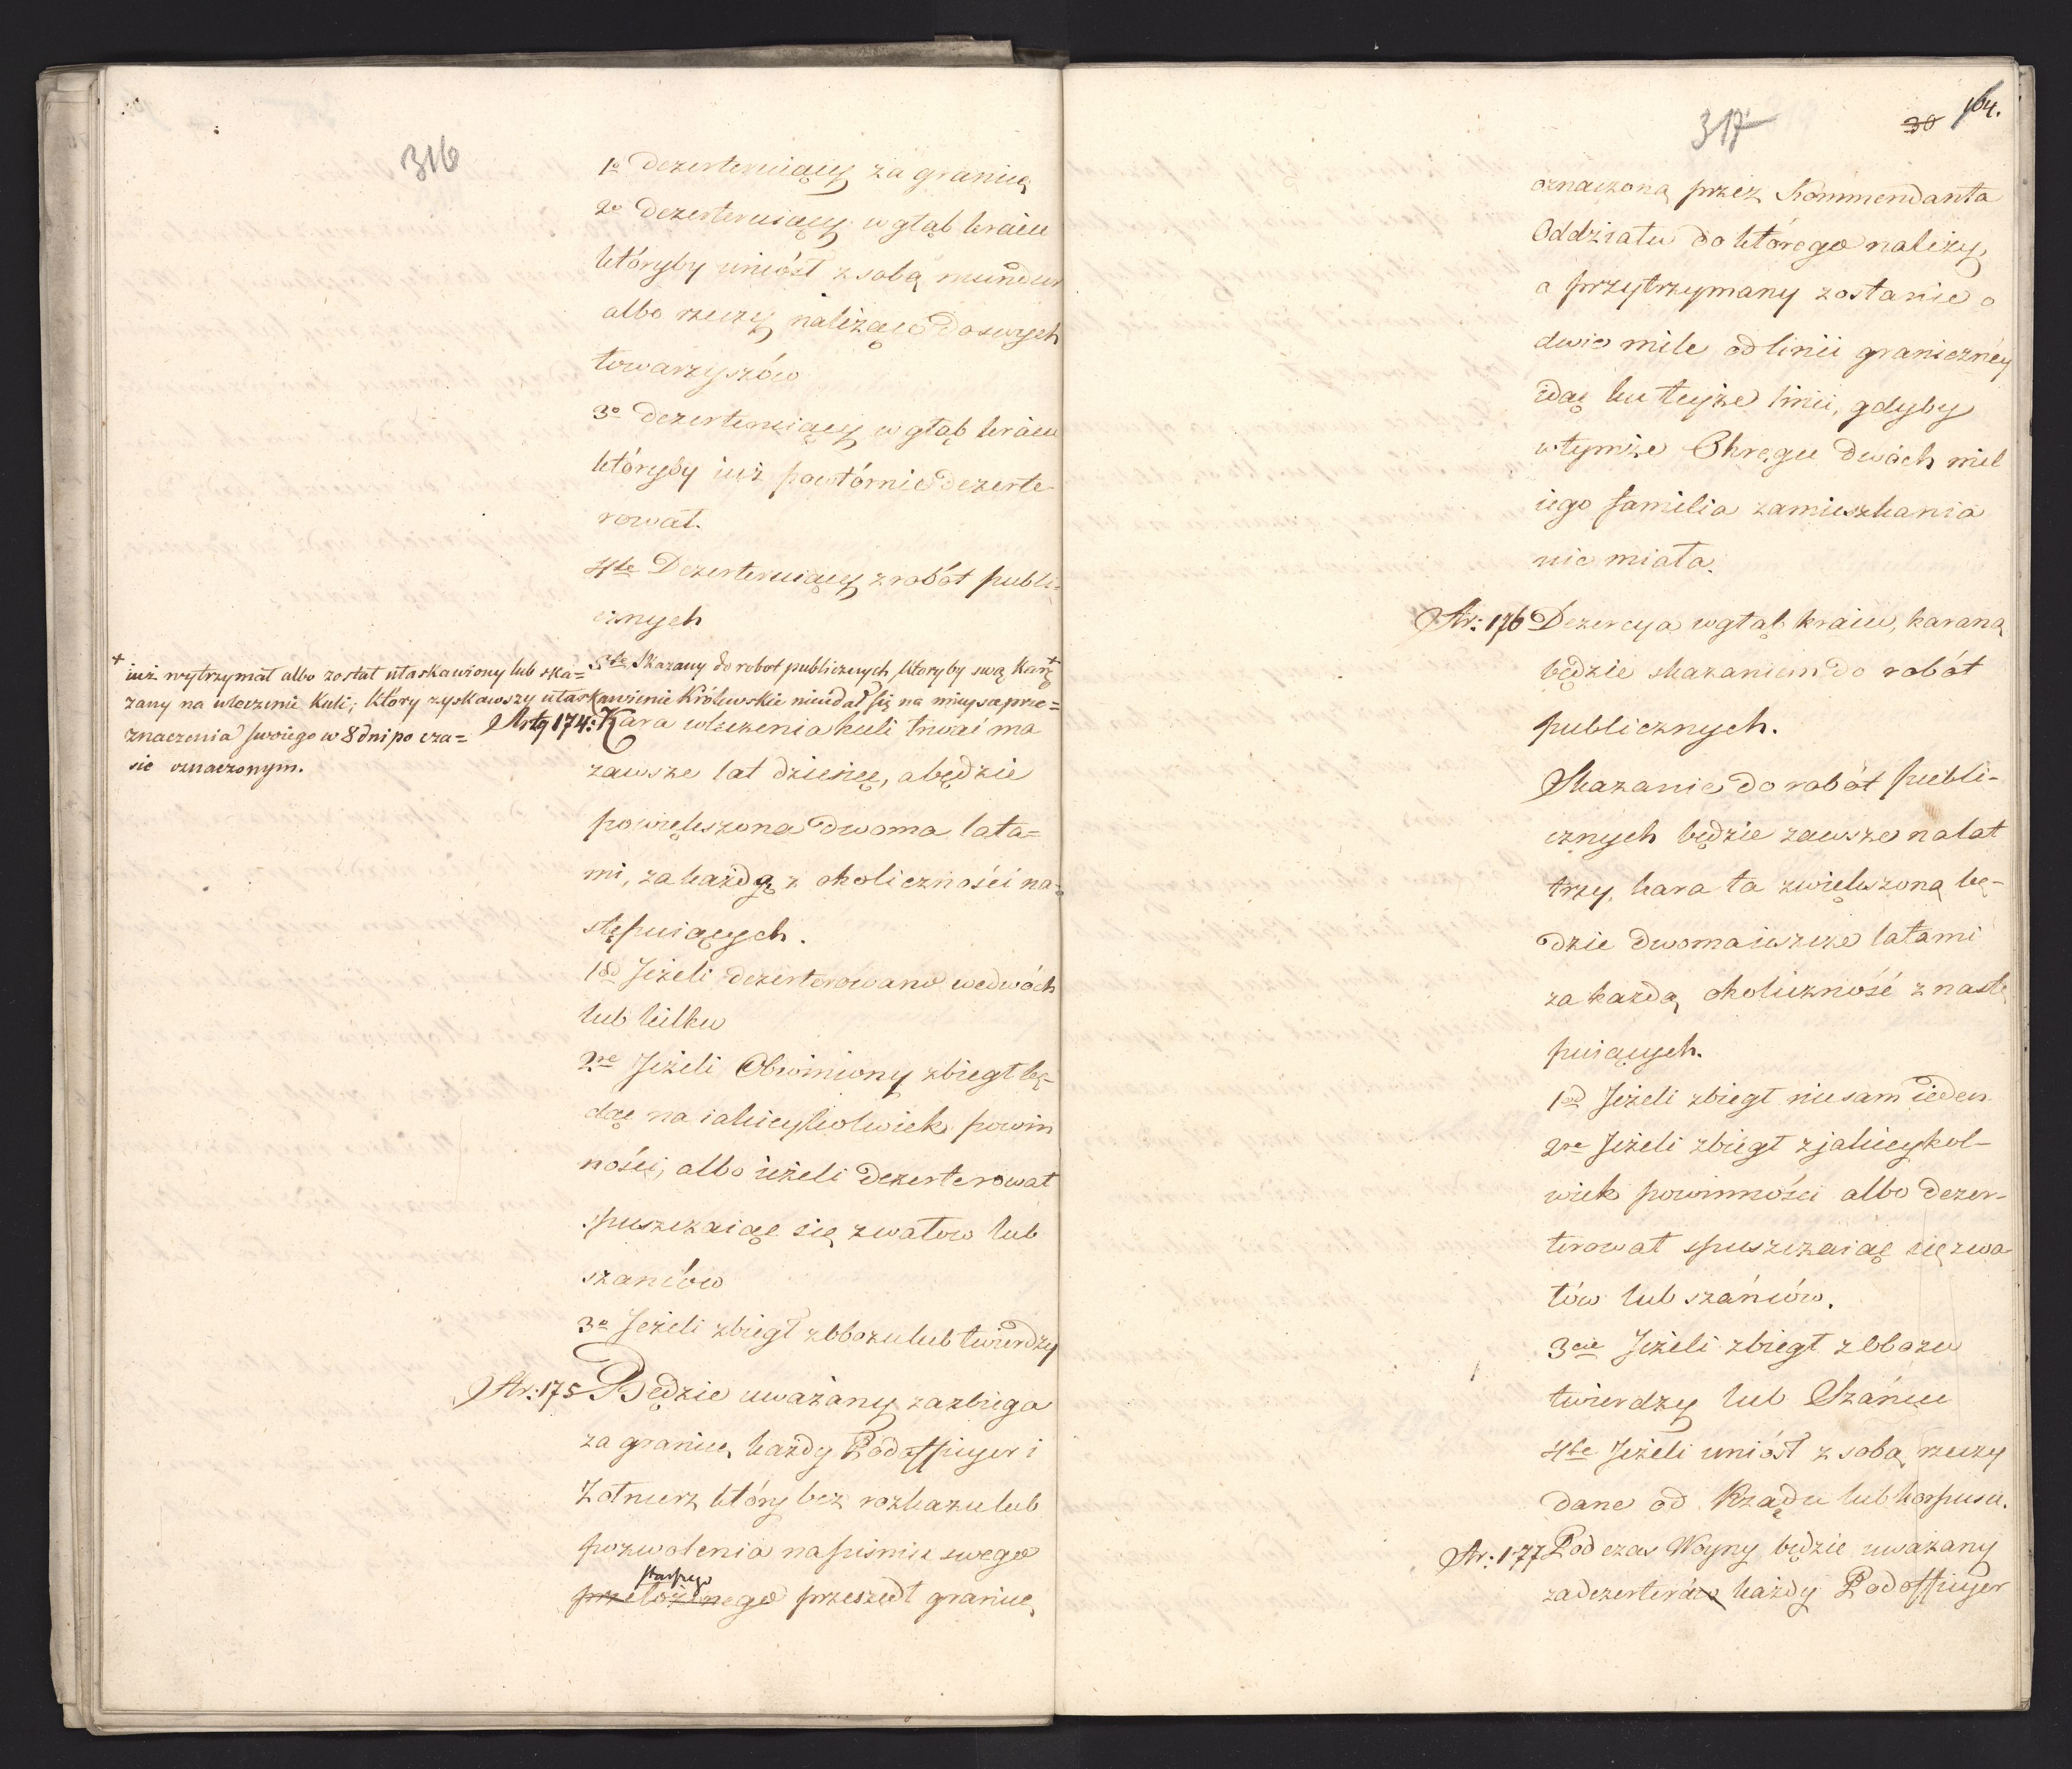 316
1o Dezerteruiący za granicę
2o Dezerteruiący w głąb kraiu
któryby uniósł z sobą mundur
albo rzeczy należące do swych
towarzyszów
3o Dezerteruiący w głąb kraiu
któryby iuż powtórnie dezerte-
rował.
4te Dezerteruiący z robót publi-
cznych
5te Skazany do robot publicznych, ktoryby swą karę +
+ iuż wytrzymał albo został ułaskawiony lub ska=
zany na włeczenie Kuli; ktory zyskawszy ułaskawienie Królewskie nieudał się na mieysce prze=
znaczenia swoiego w 8 dni po cza=
sie oznaczonym.
Arty 174: Kara włeczenia kuli trwać ma
zawsze lat dziesięć, a będzie
powiększona dwoma lata=
mi, za każdą z okoliczności na-
stępuiących.
1od Jeżeli dezerterowano we dwóch
lub kilku
2re Jeżeli Obwiniony zbiegł bę-
dąc na iakieykolwiek powin
ności, albo ieżeli dezerterował
spuszczaiąc się z wałow lub
szańców
3e Jeżeli zbiegł z obozu lub twierdzy
Ar: 175 Będzie uważany za zbiega
za granicę, każdy Podofficyer i
Żołnierz który bez rozkazu lub
pozwolenia na piśmie swego
starszego
przełożonego przeszedł granicę,
317
30
164.
oznaczoną przez Kommendanta
Oddziału do którego należy,
a przytrzymany zostanie o
dwie mile od linii graniczney
idąc ku teyże linii, gdyby
w tymże Okręgu dwóch mil
iego familia zamieszkania
nie miała.
Ar: 176 Dezercya w głąb kraiu, karaną
będzie skazaniem do robót
publicznych.
Skazanie do robót publi-
cznych będzie zawsze na lat
trzy, kara ta zwiększoną bę-
dzie dwoma ieszcze latami
za każdą okoliczność z nastę
puiących.
1od Jeżeli zbiegł nie sam ieden
2re Jeżeli zbiegł z jakieykol-
wiek powinności albo dezer-
terował spuszczaiąc się z wa
łów lub szańców.
3cie Jeżeli zbiegł z Obozu
twierdzy lub Szańcu
4te Jeżeli uniósł z sobą rzeczy
dane od Rządu lub korpusu.
Ar: 177 Podczas Woyny będzie uważany
za dezertera każdy Podofficyer